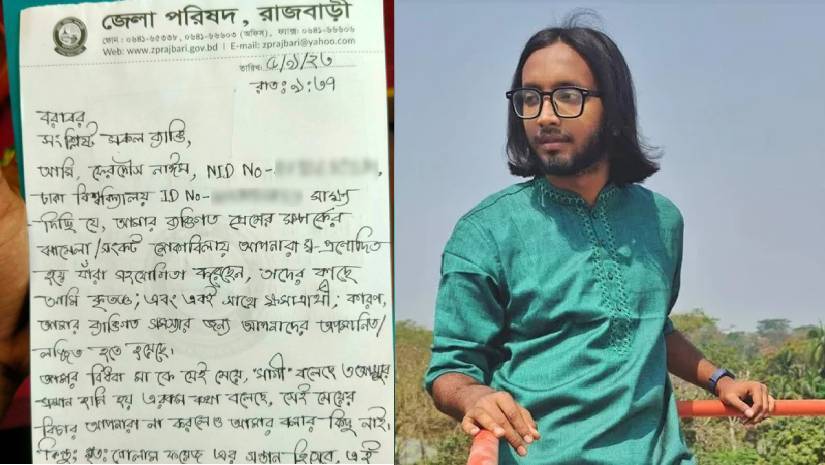 জেলা পরিষদ, রাজবাড়ী
ফোন : ০৬৪১-৬৫৩৩৮, ০৬৪১-৬৬৬০৩ (অফিস), ফ্যাক্স: ০৬৪১-৬৬৬০৬
Web: www.zprajbari.gov.bd | E-mail: zprajbari@yahoo.com
তারিখ:
রাত: ১:৩৭
বরাবর
সংশ্লিষ্ট সকল ব্যক্তি,
আমি, ফেরদৌস নাঈম, NID No-
ঢাকা বিশ্ববিদ্যালয় ID No- সাক্ষ্য
দিচ্ছি যে, আমার ব্যক্তিগত প্রেমের সম্পর্কের
ঝামেলা/সংকট মোকাবিলায় আপনারা স্ব-প্রণোদিত
হয়ে যাঁরা সহযোগিতা করেছেন, তাদের কাছে
আমি কৃতজ্ঞ; এবং একই সাথে ক্ষমাপ্রার্থী; কারণ,
আমার ব্যক্তিগত সমস্যার জন্য আপনাদের অপমানিত/
লজ্জিত হতে হয়েছে।
আমার বিধবা মা কে যেই মেয়ে, "মাগী" বলেছে ও আম্মুর
সম্মান হানি হয় এরকম কথা বলেছে, সেই মেয়ের
বিচার আপনারা না করলেও আমার বলার কিছু নাই।
কিন্তু, মৃত: গোলাম ফয়েজ এর সন্তান হিসেবে, এই